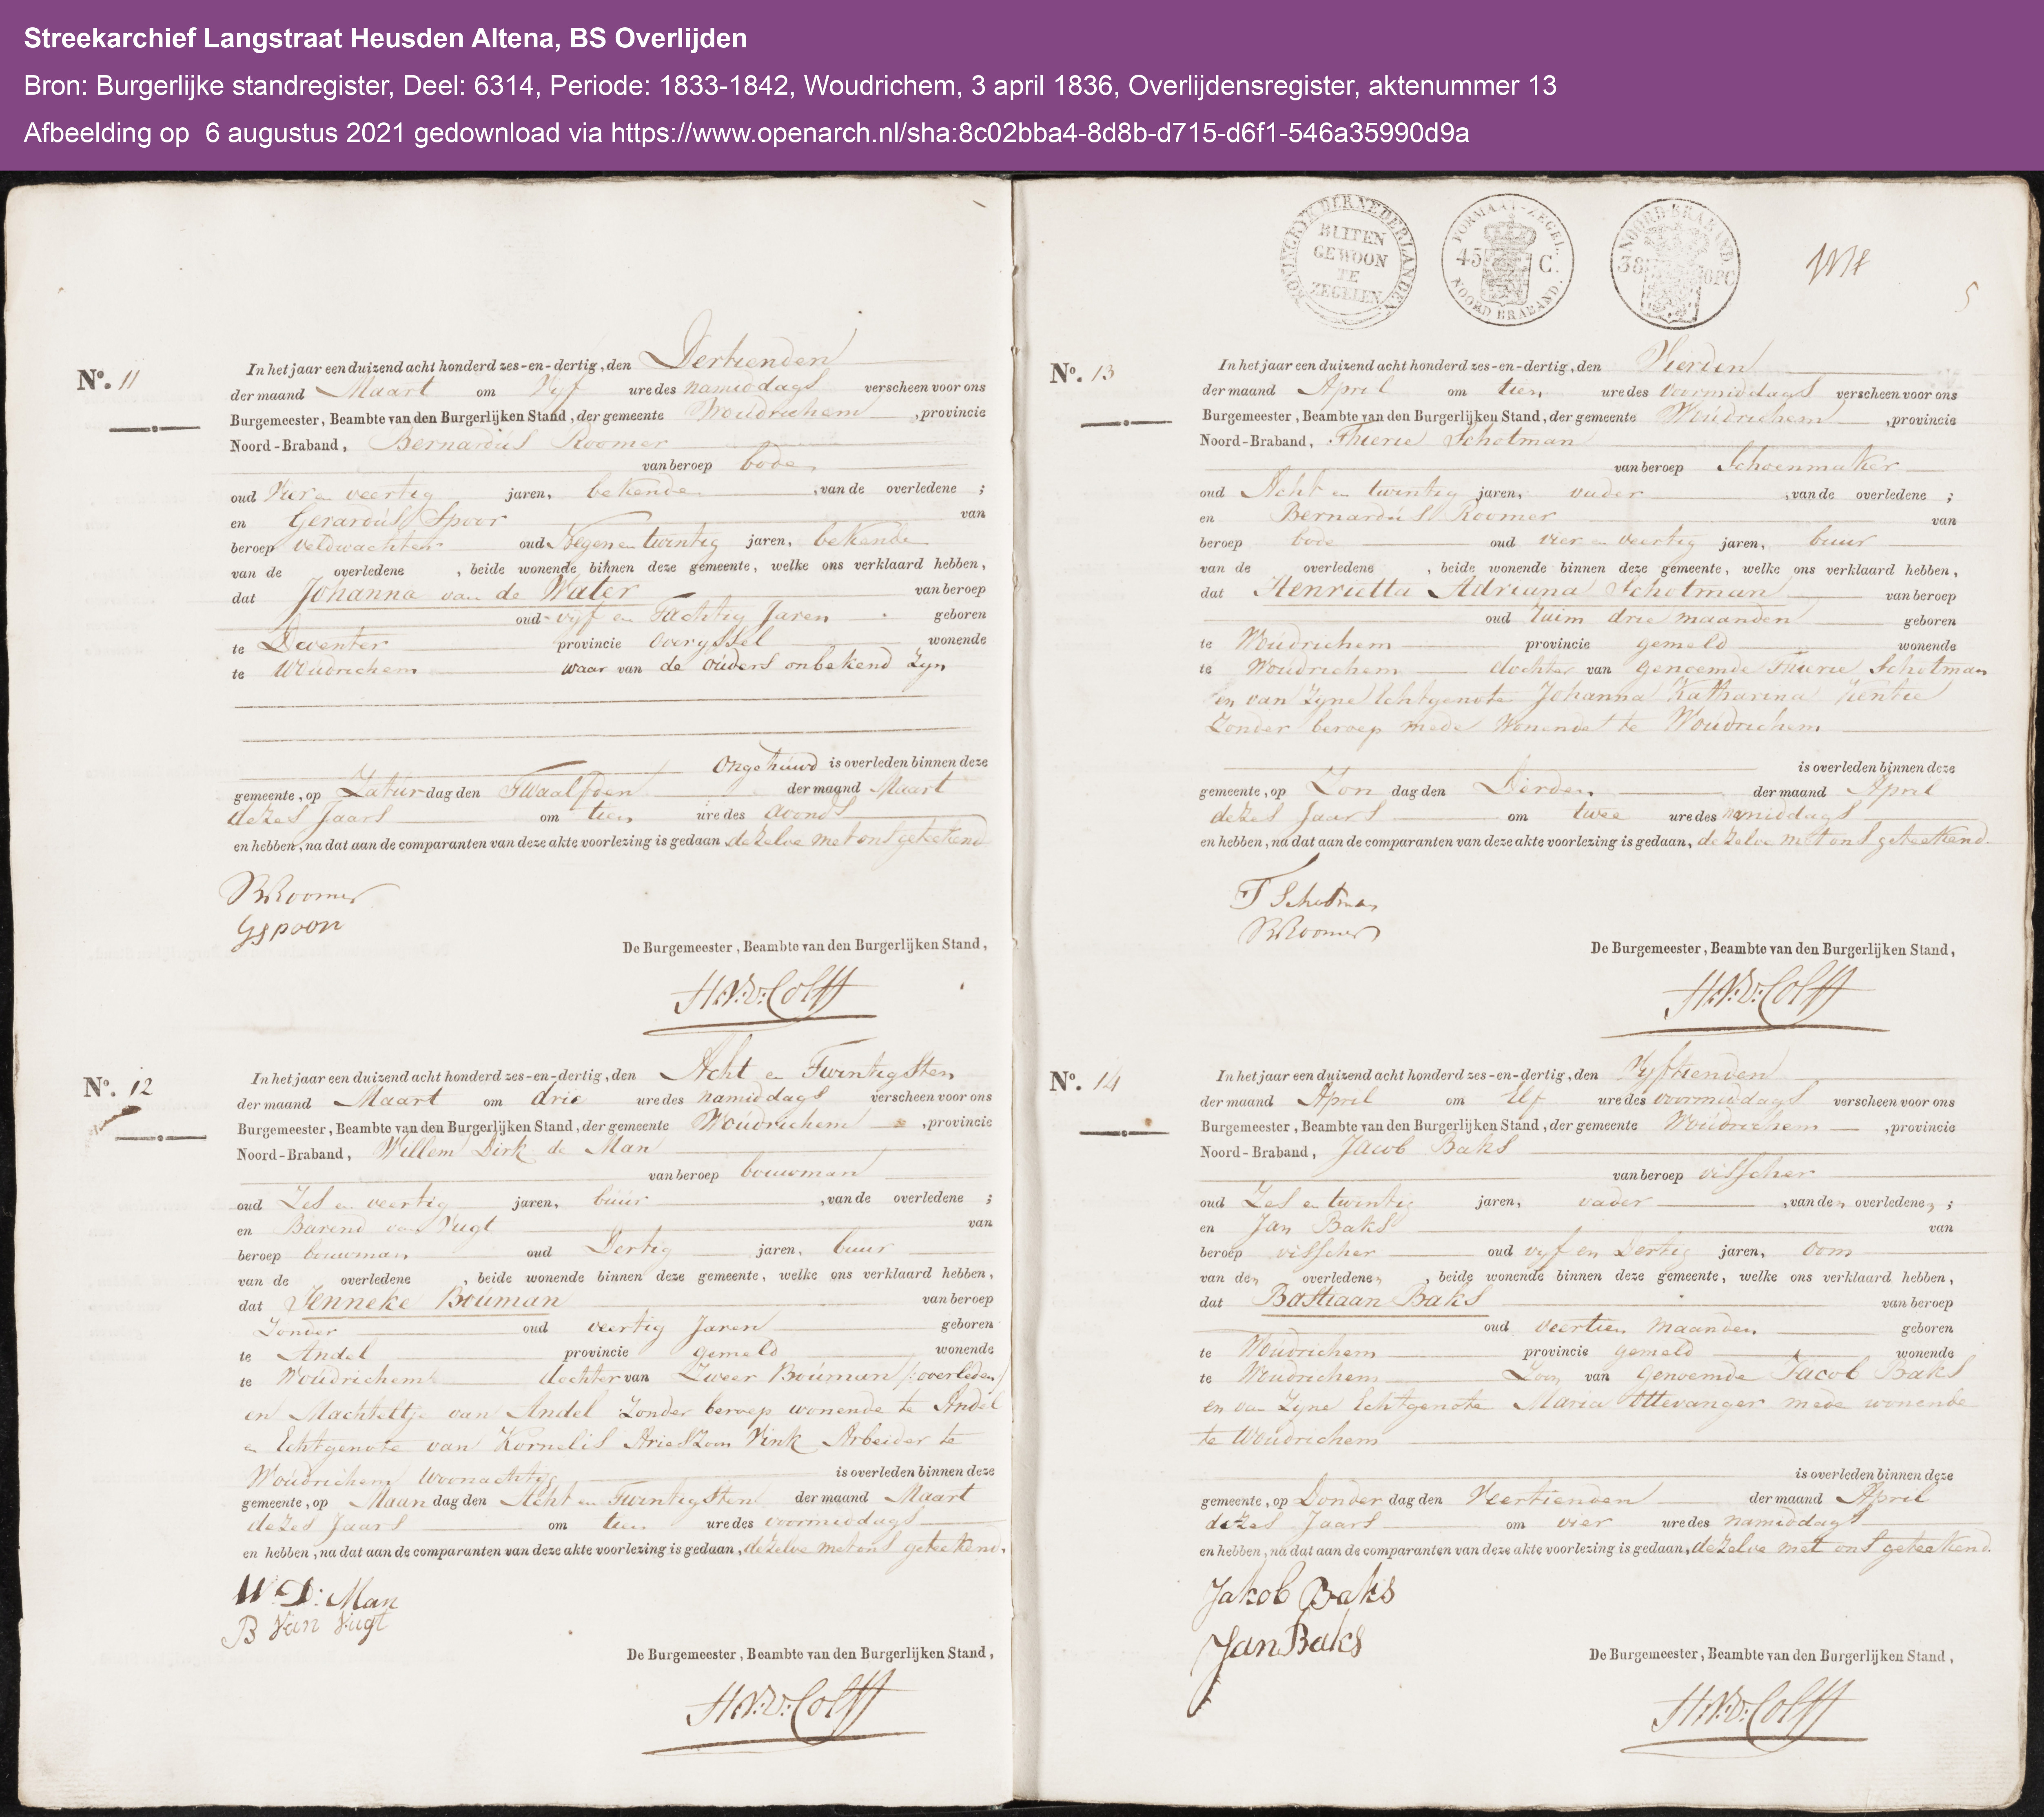 Streekarchief Langstraat Heusden Altena, BS Overlijden
Bron: Burgerlijke standregister, Deel: 6314, Periode: 1833-1842, Woudrichem, 3 april 1836, Overlijdensregister, aktenummer 13
Afbeelding op 6 augustus 2021 gedownload via https://www.openarch.nl/sha:8c02bba4-8d8b-d715-d6f1-546a35990d9a
No. 11
In het jaar een duizend acht honderd zes-en-dertig, den Dertienden
der maand Maart om Vyf ure des namiddags verscheen voor ons
Burgemeester, Beambte van den Burgerlijken Stand, der gemeente Woudrichem, provincie
Noord-Braband, Bernardus Roomer
van beroep bode
oud Vier en veertig jaren, bekende, van de overledene ;
en Gerardus Spoor van
beroep veldwachter oud Negen en twintig jaren, bekende
van de overledene, beide wonende binnen deze gemeente, welke ons verklaard hebben,
dat Johanna van de Water van beroep
oud vyf en Tachtig Jaren geboren
te Deventer provincie Overyssel wonende
te Woudrichem waar van de ouders onbekend zyn
Ongehuwd is overleden binnen deze
gemeente, op Zaturdag den Twaalfden der maand Maart
dezes Jaars om tien ure des avonds
en hebben, na dat aan de comparanten van deze akte voorlezing is gedaan dezelve met ons geteekend
BRoomer
GSpoor
De Burgemeester, Beambte van den Burgerlijken Stand,
No. 12
In het jaar een duizend acht honderd zes-en-dertig, den Acht en Twintigsten
der maand Maart om drie ure des namiddags verscheen voor ons
Burgemeester, Beambte van den Burgerlijken Stand, der gemeente Woudrichem, provincie
Noord-Braband, Willem Dirk de Man
van beroep bouwman
oud Zes en veertig jaren, buur, van de overledene ;
en Barend van Vugt van
beroep bouwman oud Dertig jaren, buur
van de overledene, beide wonende binnen deze gemeente, welke ons verklaard hebben,
dat Jenneke Bouman van beroep
Zonder oud veertig Jaren geboren
te Andel provincie gemeld wonende
te Woudrichem dochter van Zweer Bouman /:overleden/
en Machteltje van Andel zonder beroep wonende te Andel
en Echtgenote van Kornelis Arieszoon Vink Arbeider te
Woudrichem woonachtig is overleden binnen deze
gemeente, op Maandag den Acht en Twintigsten der maand Maart
dezes Jaars om tien ure des voormiddags
en hebben, na dat aan de comparanten van deze akte voorlezing is gedaan, dezelve met ons geteekend.
W:D: Man
B Van Vugt
De Burgemeester, Beambte van den Burgerlijken Stand,
KONINGRYK DER NEDERLANDEN
BUITEN
GEWOON
TE
ZEGELEN
FORMAAT-ZEGEL
45 C.
NOORD BRABAND.
NOORD BRABAND.
38 OPC
5
No. 13
In het jaar een duizend acht honderd zes-en-dertig, den Vierden
der maand April om tien ure des voormiddags verscheen voor ons
Burgemeester, Beambte van den Burgerlijken Stand, der gemeente Woudrichem, provincie
Noord-Braband, Thierie Schotman
van beroep Schoenmaker
oud Acht en twintig jaren, vader, van de overledene ;
en Bernardus Roomer van
beroep bode oud vier en veertig jaren, buur
van de overledene, beide wonende binnen deze gemeente, welke ons verklaard hebben,
dat Henrietta Adriana Schotman van beroep
oud ruim drie maanden geboren
te Woudrichem provincie gemeld wonende
te Woudrichem dochter van genoemde Thierie Schotman
en van zyne Echtgenote Johanna Katharina
zonder beroep mede Wonende te Woudrichem
is overleden binnen deze
gemeente, op Zon dag den Derden der maand April
dezes Jaars om twee ure des namiddags
en hebben, na dat aan de comparanten van deze akte voorlezing is gedaan, dezelve met ons geteekend.
T Schotman
BRoomer
De Burgemeester, Beambte van den Burgerlijken Stand,
No. 14
In het jaar een duizend acht honderd zes-en-dertig, den Vyftienden
der maand April om Elf ure des voormiddags verscheen voor ons
Burgemeester, Beambte van den Burgerlijken Stand, der gemeente Woudrichem, provincie
Noord-Braband, Jacob Baks
van beroep visscher
oud Zes en twintig jaren, vader, van den overledenen ;
en Jan Baks van
beroep visscher oud vyf en Dertig jaren, oom
van den overledenen, beide wonende binnen deze gemeente, welke ons verklaard hebben,
dat Bastiaan Baks van beroep
oud veertien maanden geboren
te Woudrichem provincie gemeld wonende
te Woudrichem Zoon van Genoemde Jacob Baks
en van Zyne Echtgenote Maria Ottevanger mede wonende
te Woudrichem
is overleden binnen deze
gemeente, op Donder dag den Veertienden der maand April
dezes Jaars om vier ure des namiddags
en hebben, na dat aan de comparanten van deze akte voorlezing is gedaan, dezelve met ons geteekend.
Jakob Baks
Jan Baks
De Burgemeester, Beambte van den Burgerlijken Stand,